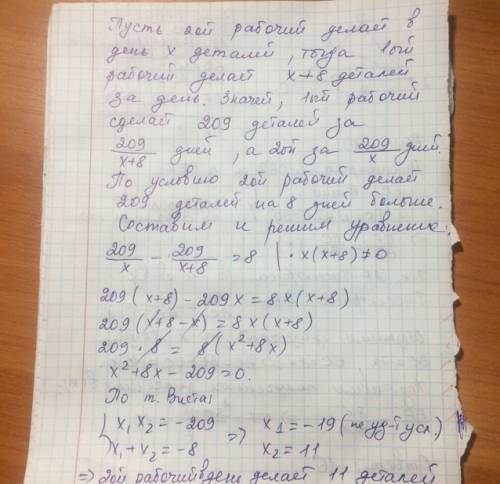 Пусть 2ой рабочий делает в
день x деталей, тогда 1ый
рабочий делает x+8 деталей
за день. Значит, 1ый рабочий
сделает 209 деталей за
209/(x+8) дней, а 2ой за 209/x дней.
По условию 2ой рабочий делает
209 деталей на 8 дней больше.
Составим и решим уравнение:
209/x - 209/(x+8) = 8 | · x(x+8) ≠ 0
209(x+8) - 209x = 8x(x+8)
209(x+8-x) = 8x(x+8)
209 · 8 = 8(x²+8x)
x²+8x-209=0.
По т. Виета:
{ x₁x₂ = -209 => x₁ = -19 (не уд-т усл.)
x₁+x₂ = -8 x₂ = 11
=> 2ой рабочий в день делает 11 деталей